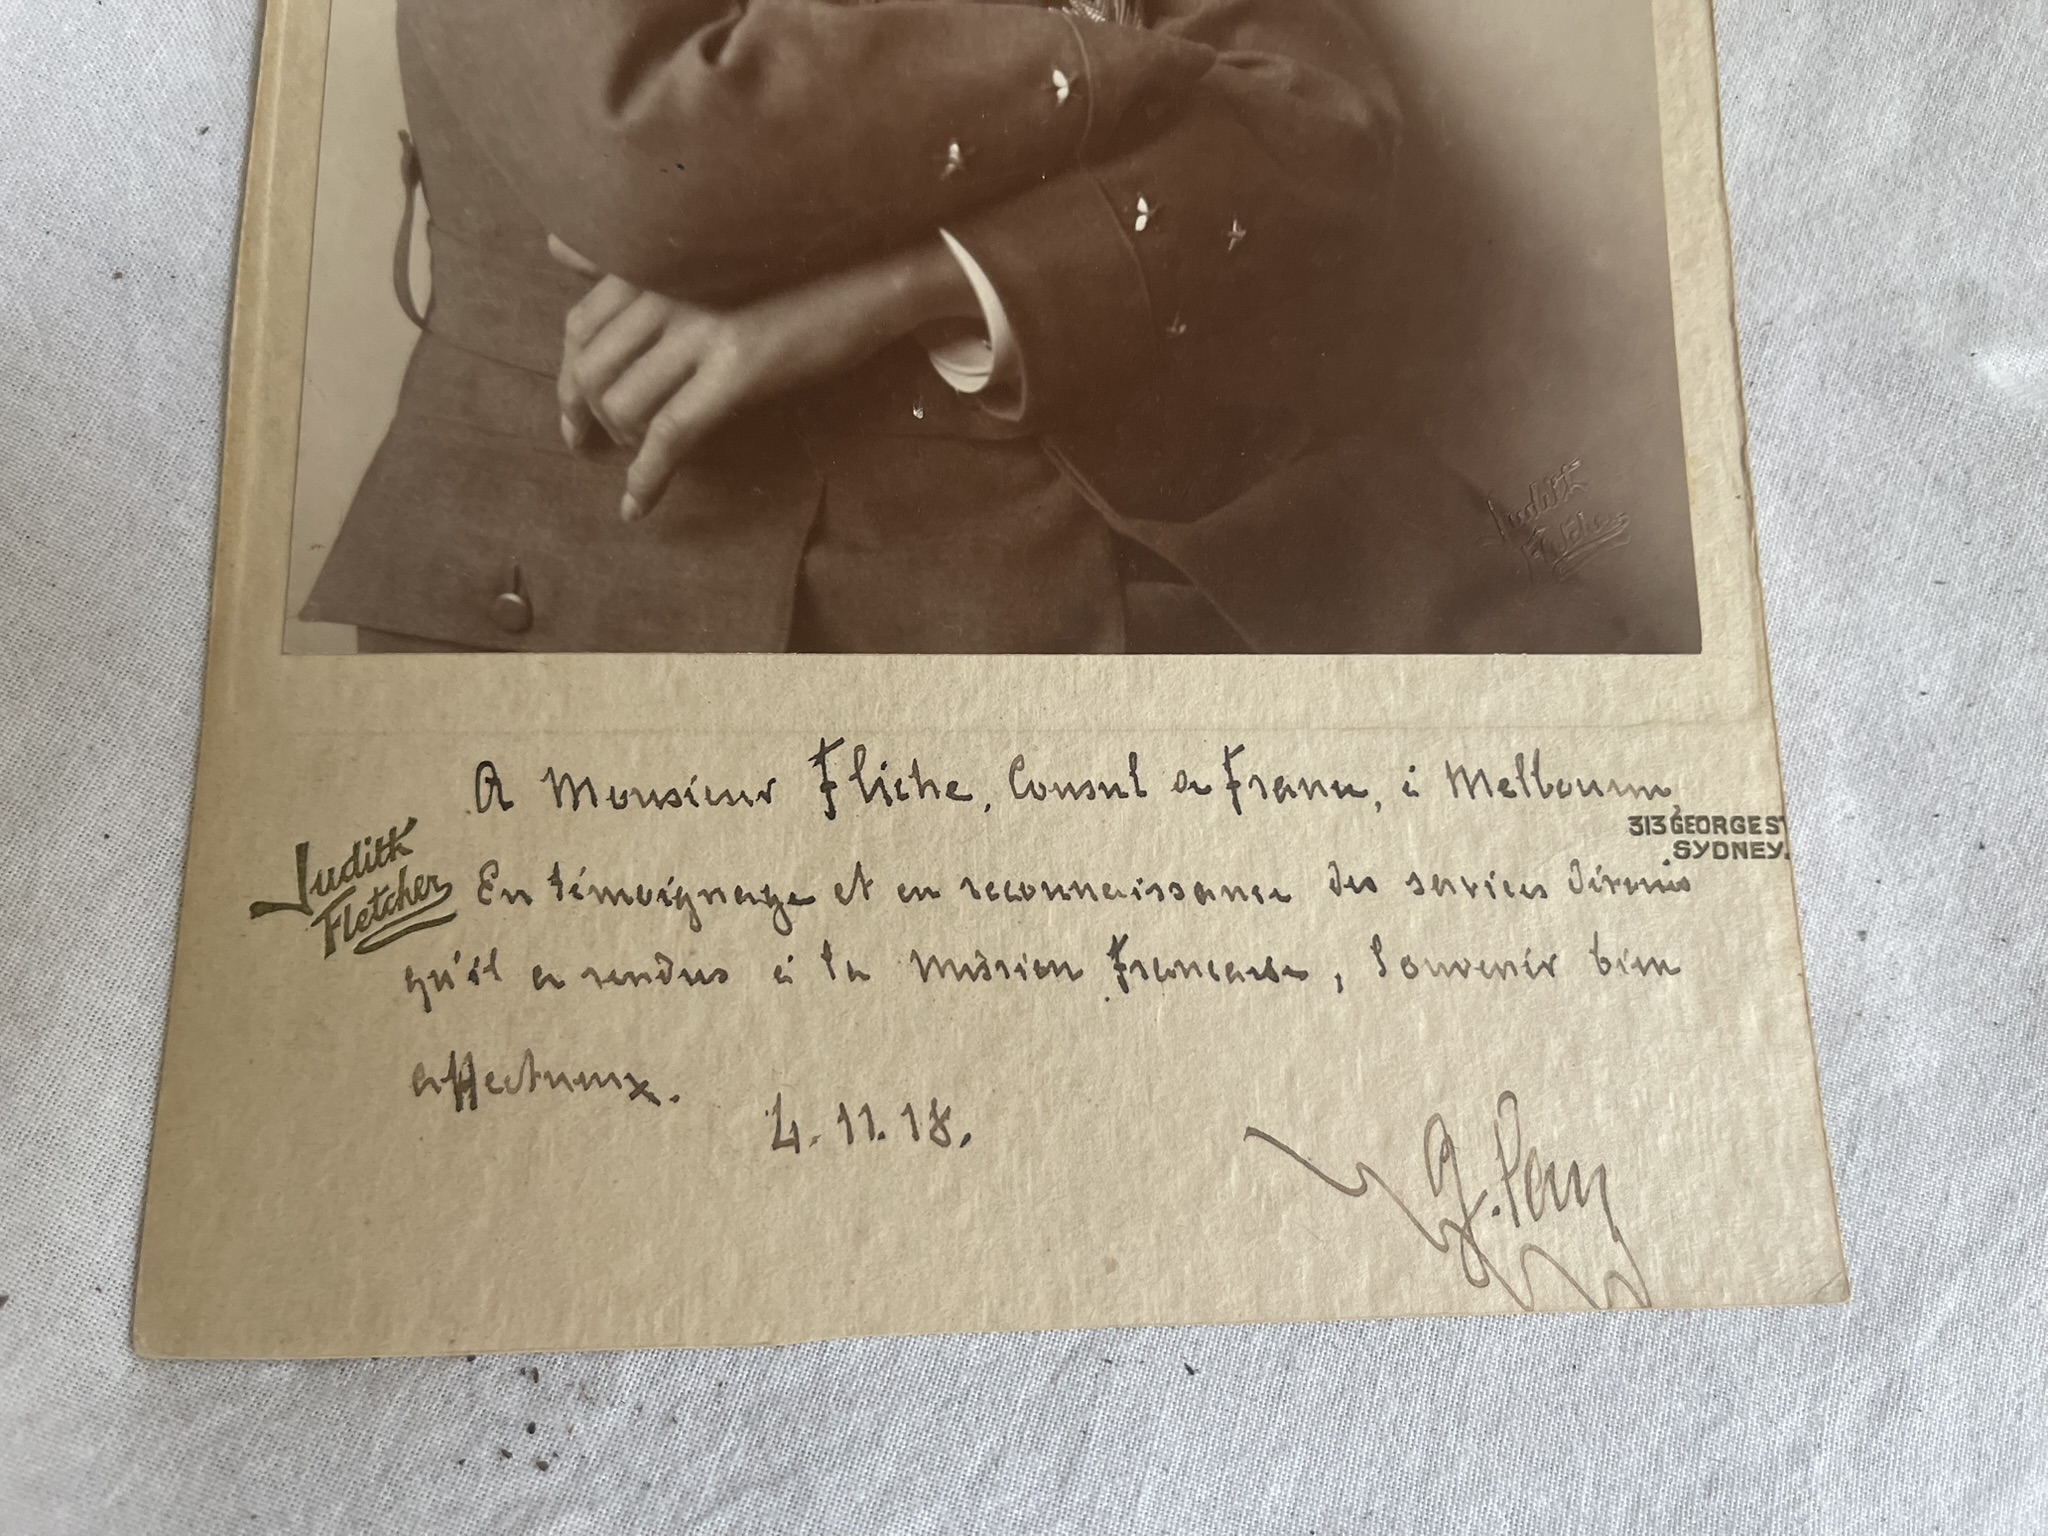 Judith
Fletcher
A Monsieur Fliche, Consul de France, à Melbourne,
Judith
Fletcher
313 GEORGE ST
SYDNEY.
En témoignage et en reconnaissance des services dévoués
qu'il a rendus à la Mission Française, Souvenir bien
affectueux.
4.11.18.